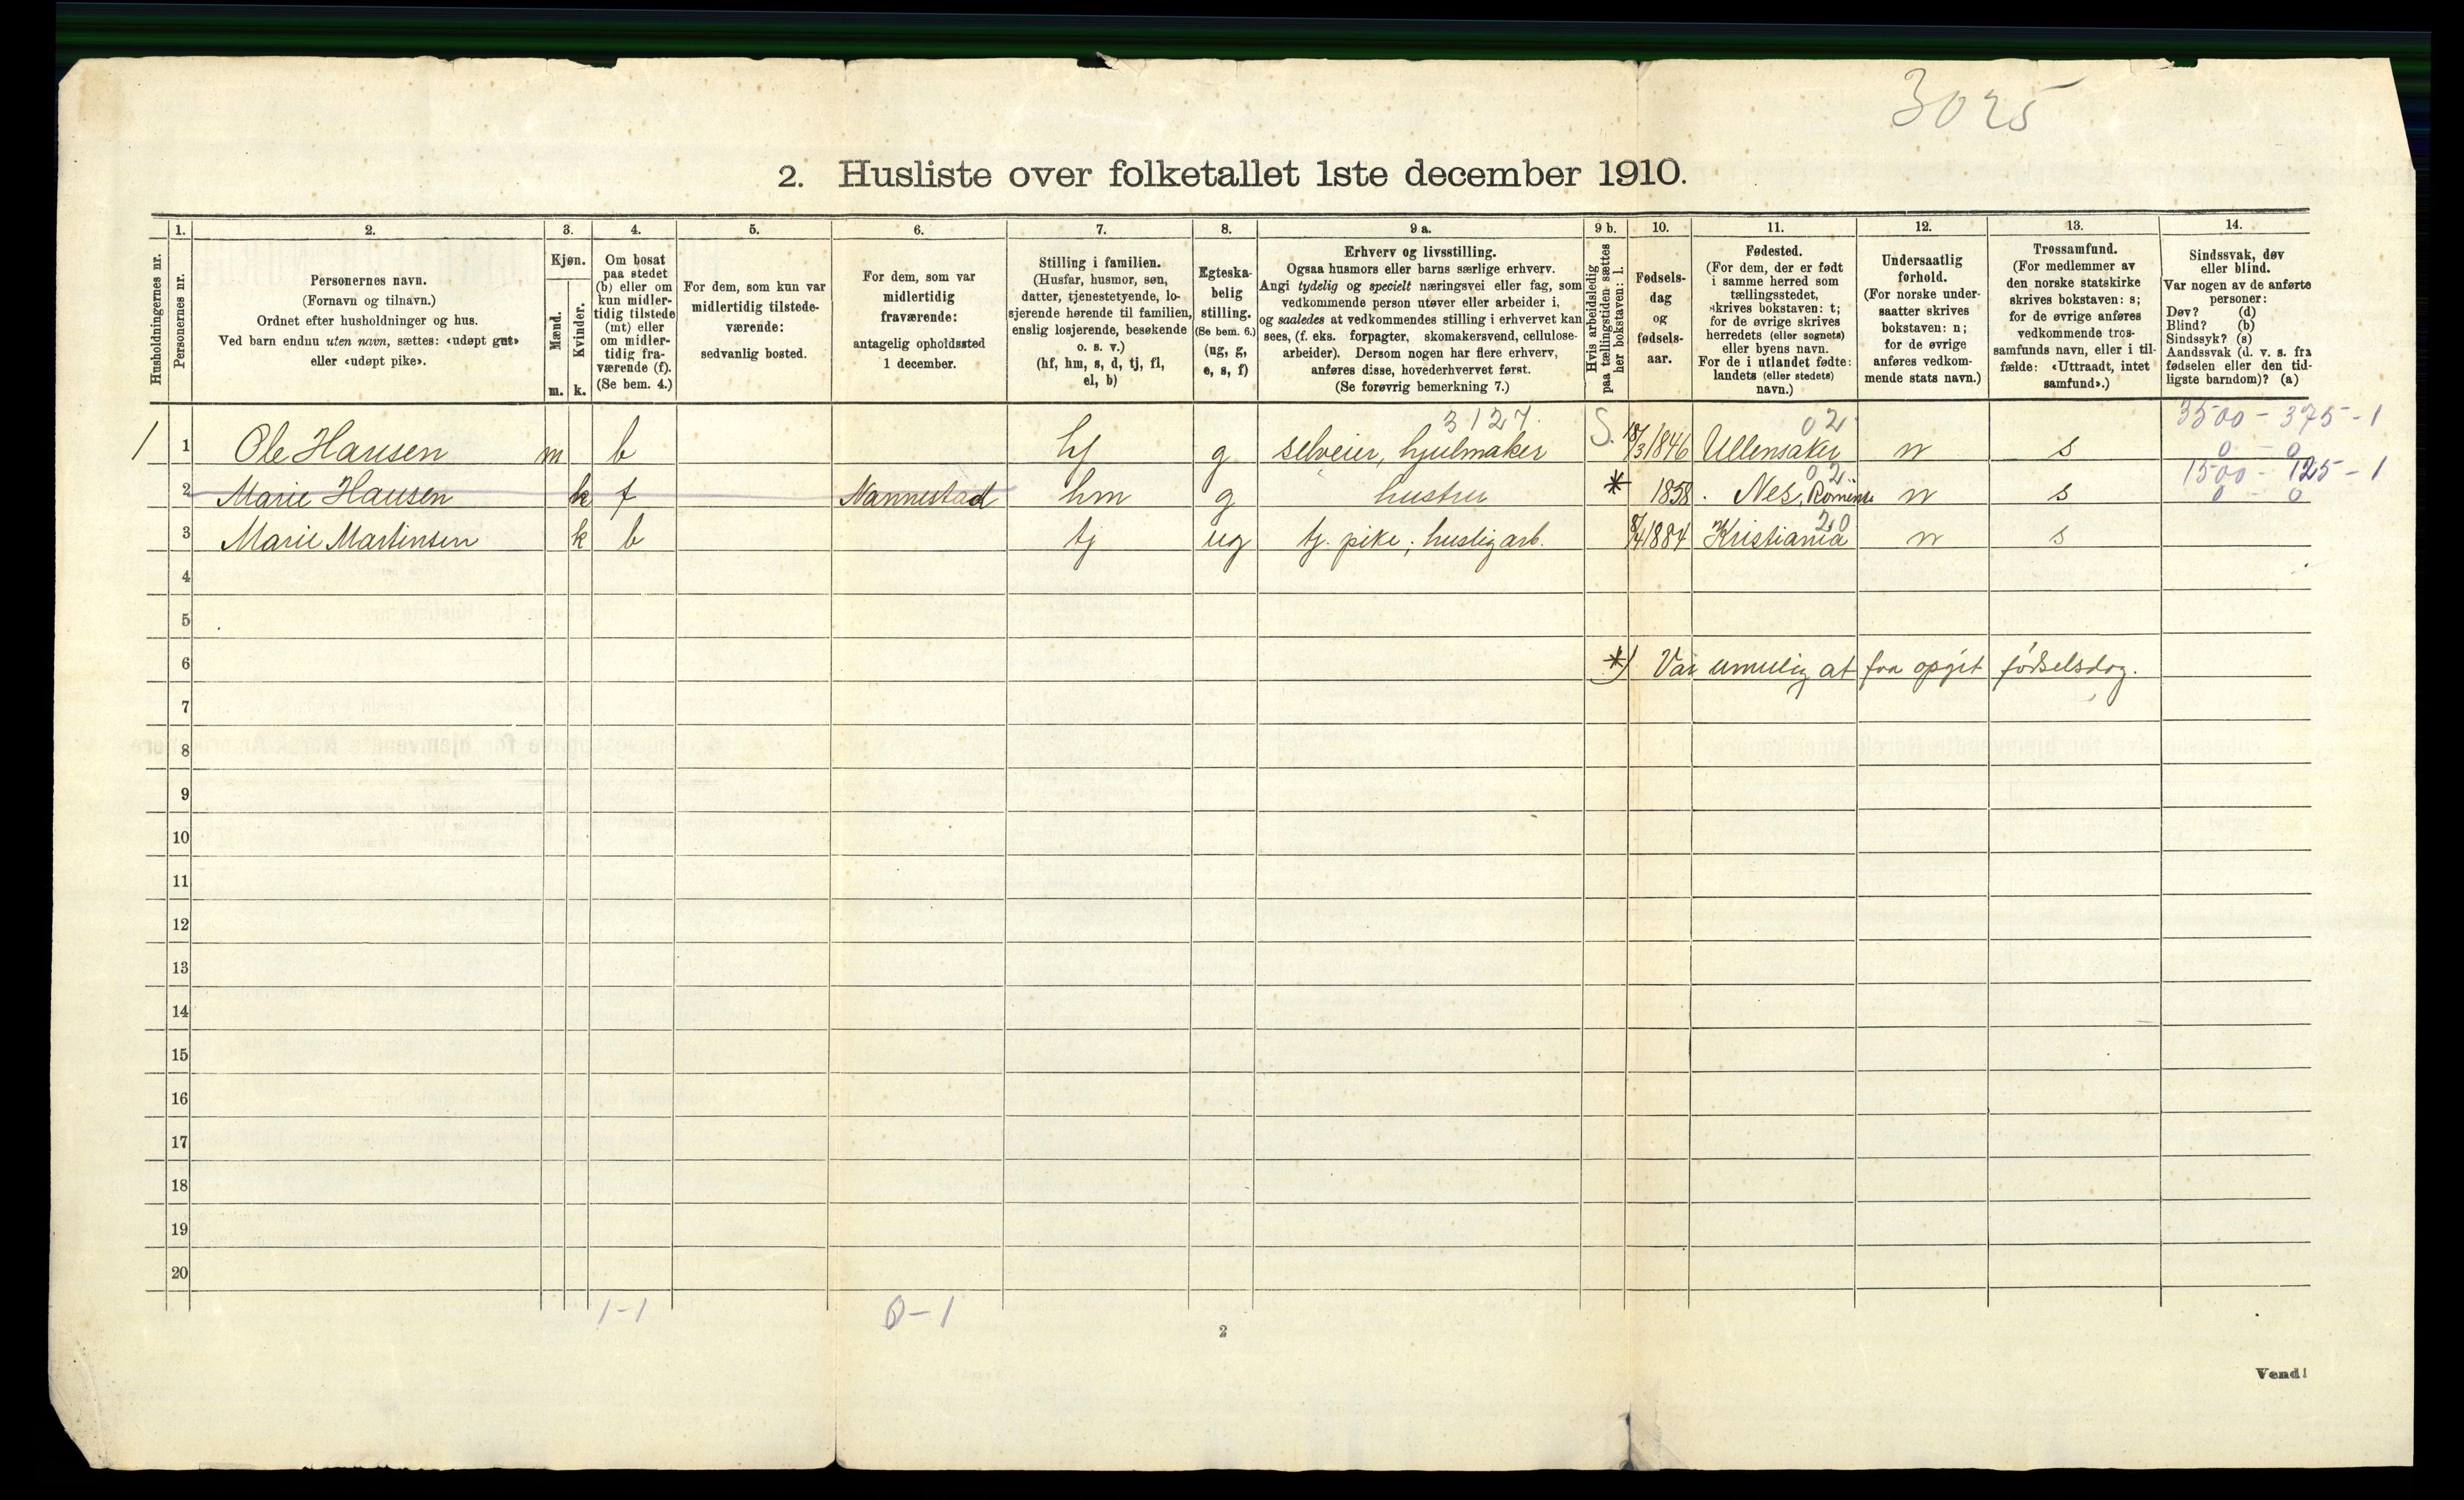 3025
2. Husliste over folketallet 1ste december 1910.
Husholdningernes nr.
1.
Personernes nr.
2.
Personernes navn.
(Fornavn og tilnavn.)
Ordnet efter husholdninger og hus.
Ved barn endnu uten navn, sættes: «udøpt gut»
eller «udøpt pike».
3.
Kjøn.
Mænd.
Kvinder.
m. k.
4.
Om bosat
paa stedet
(b) eller om
kun midler-
tidig tilstede
(mt) eller
om midler-
tidig fra-
værende (f).
(Se bem. 4.)
5.
For dem, som kun var
midlertidig tilstede-
værende:
sedvanlig bosted.
6.
For dem, som var
midlertidig
fraværende:
antagelig opholdssted
1 december.
7.
Stilling i familien.
(Husfar, husmor, søn,
datter, tjenestetyende, lo-
sjerende hørende til familien,
enslig losjerende, besøkende
o. s. v.)
(hf, hm, s, d, tj, fl,
el, b)
8.
Egteska-
belig
stilling.
(Se bem. 6.)
(ug, g,
e, s, f)
9 a.
Erhverv og livsstilling.
Ogsaa husmors eller barns særlige erhverv.
Angi tydelig og specielt næringsvei eller fag, som
vedkommende person utøver eller arbeider i,
og saaledes at vedkommendes stilling i erhvervet kan
sees, (f. eks. forpagter, skomakersvend, cellulose-
arbeider). Dersom nogen har flere erhverv,
anføres disse, hovederhvervet først.
(Se forøvrig bemerkning 7.)
9 b.
Hvis arbeidsledig
paa tællingstiden sættes
her bokstaven: l.
10.
Fødsels-
dag
og
fødsels-
aar.
11.
Fødested.
(For dem, der er født
i samme herred som
tællingsstedet,
skrives bokstaven: t;
for de øvrige skrives
herredets (eller sognets)
eller byens navn.
For de i utlandet fødte:
landets (eller stedets)
navn.)
12.
Undersaatlig
forhold.
(For norske under-
saatter skrives
bokstaven: n;
for de øvrige
anføres vedkom-
mende stats navn.)
13.
Trossamfund.
(For medlemmer av
den norske statskirke
skrives bokstaven: s;
for de øvrige anføres
vedkommende tros-
samfunds navn, eller i til-
fælde: «Uttraadt, intet
samfund».)
14.
Sindssvak, døv
eller blind.
Var nogen av de anførte
personer:
Døv? (d)
Blind? (b)
Sindssyk? (s)
Aandssvak (d. v. s. fra
fødselen eller den tid-
ligste barndom)? (a)
3127. 02 3500 - 375 - 1
1 1 Ole Hansen m b hf g selveier, hjulmaker S. 18/3 1846 Ullensaker n s 0 - 0
02 1500 - 125 - 1
2 Marie Hansen k f Nannestad hm g hustru * 1858. Nes, Romerike n s 0 - 0
20
3 Marie Martinsen k b tj ug tj. pike; husligarb. 8/4 1884 Kristiania n s
4
5
6 *) Var umulig at faa opgit fødselsdag.
7
8
9
10
11
12
13
14
15
16
17
18
19
20
1-1 0-1
2
Vend!